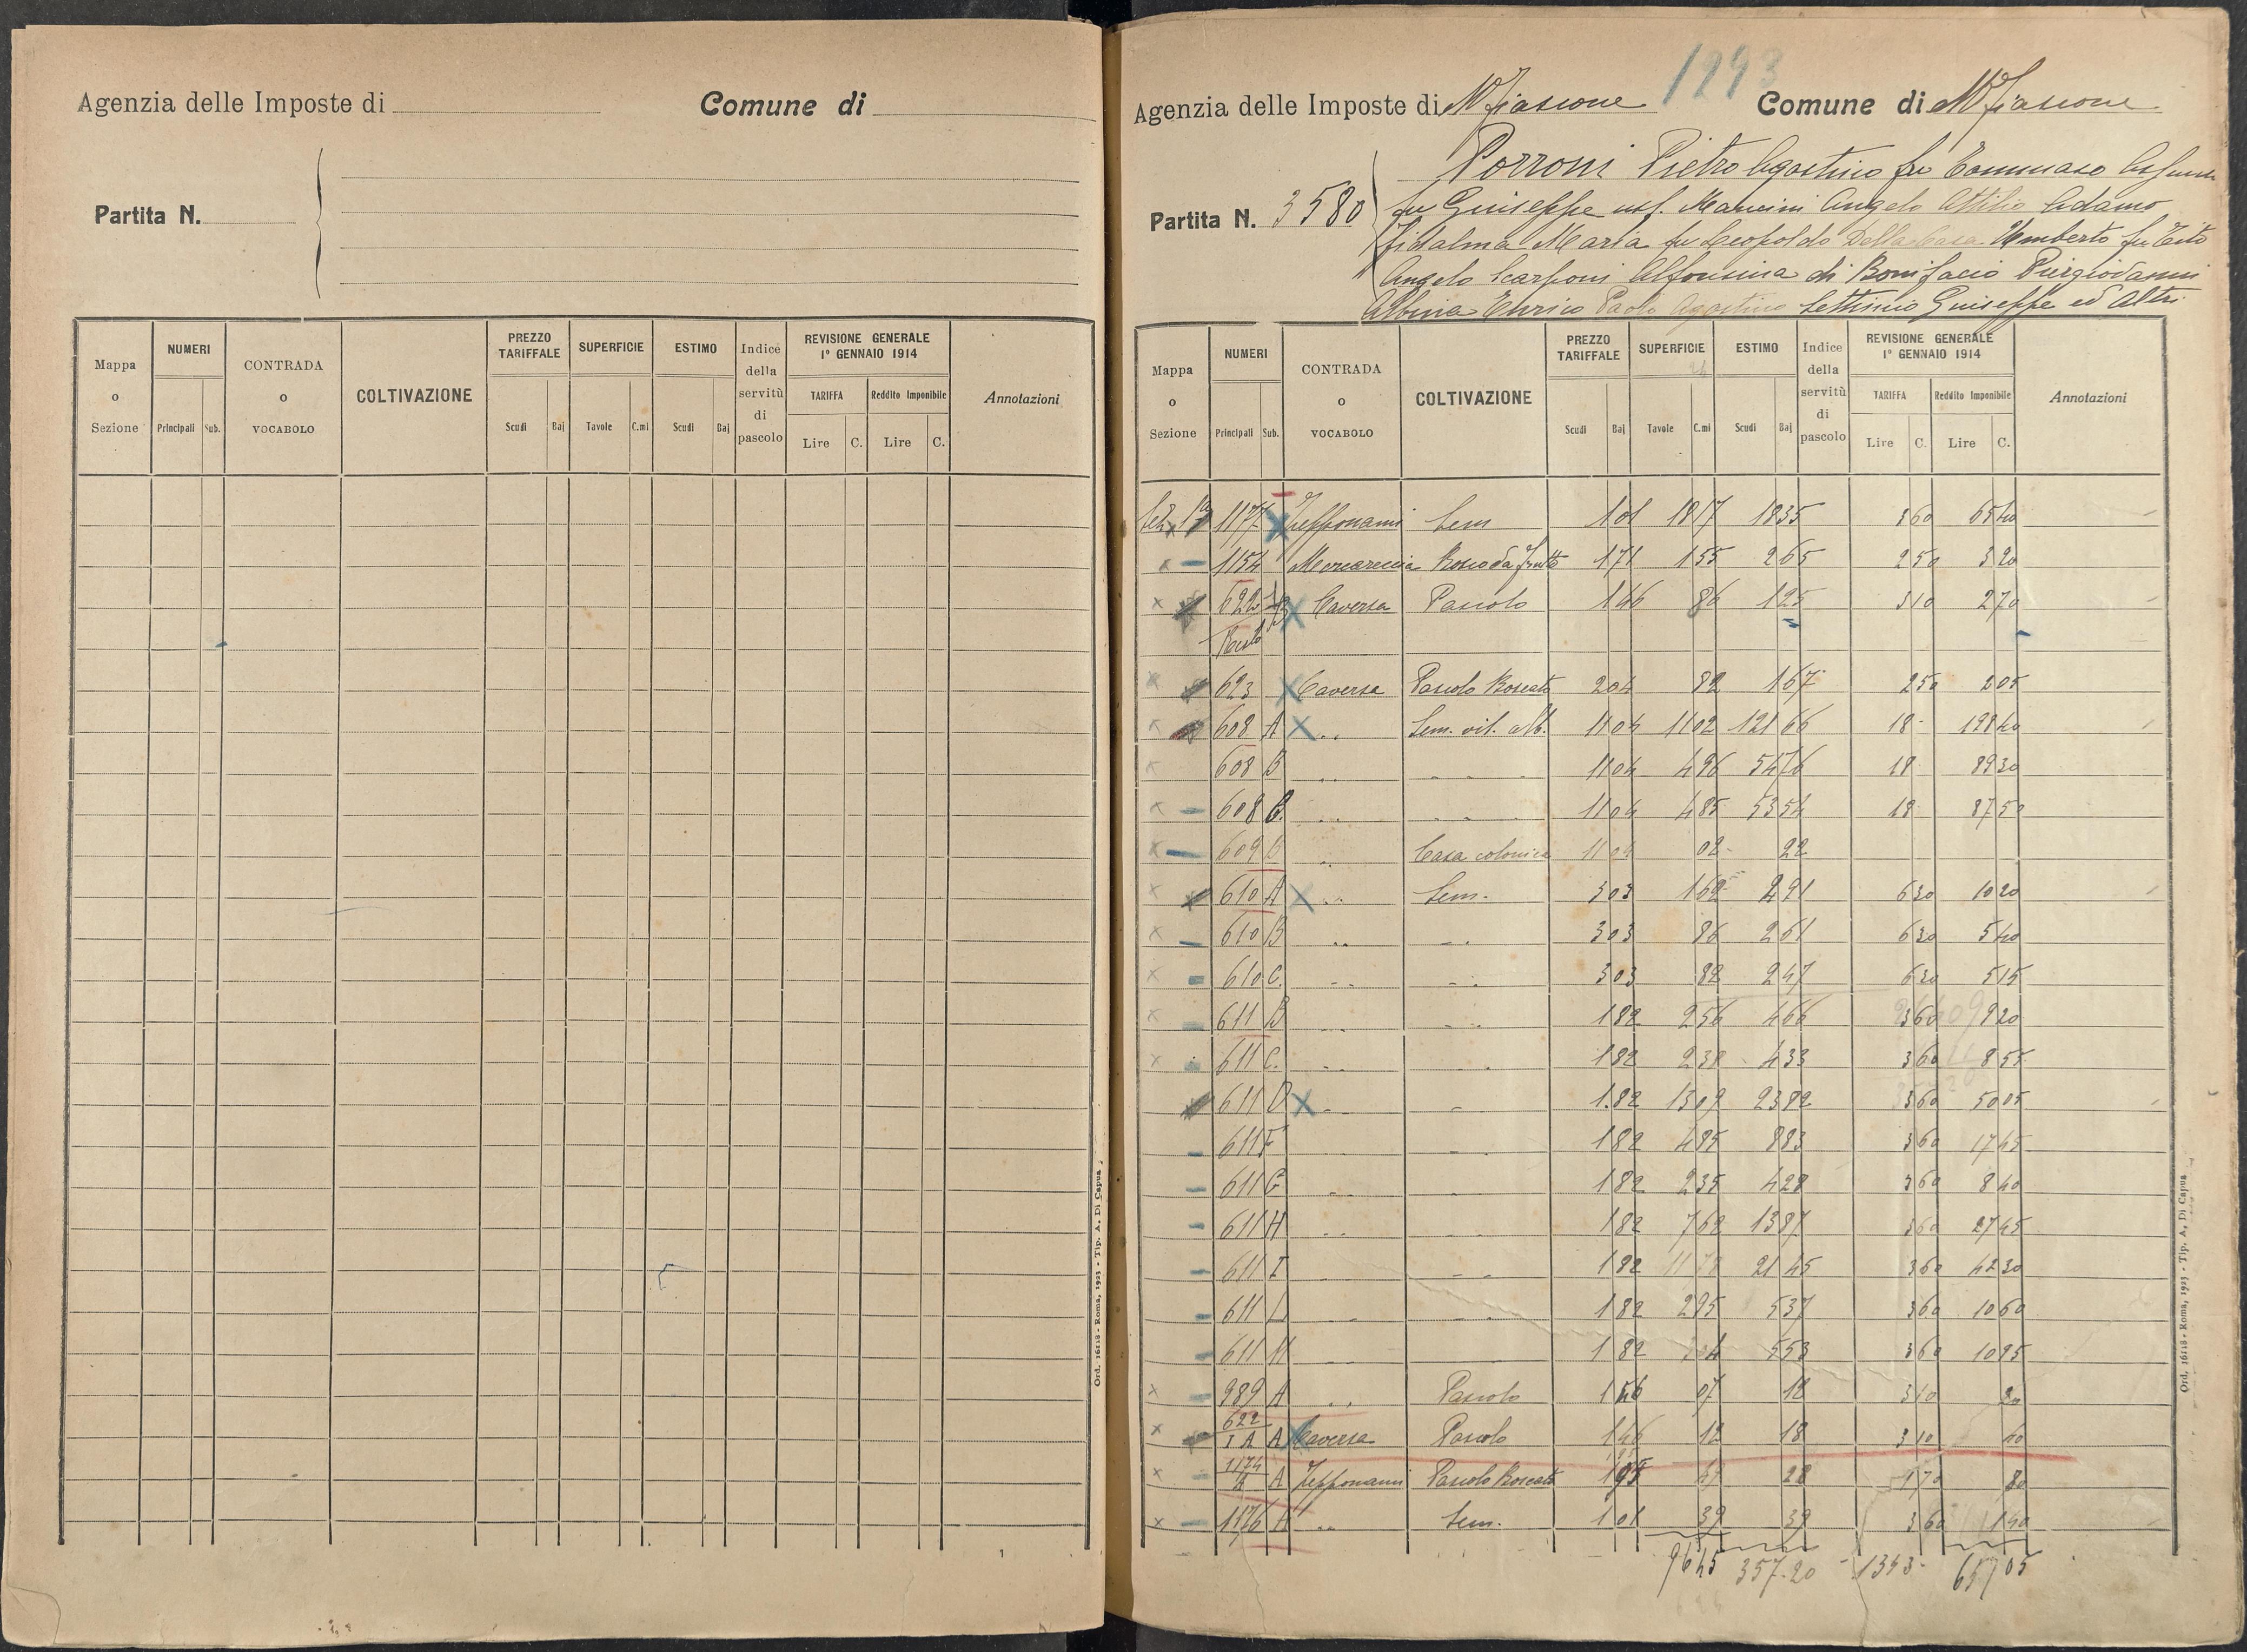 Agenzia delle Imposte di
Comune di
Partita N.
Mappa o Sezione
NUMERI
Principali Sub.
CONTRADA o VOCABOLO
COLTIVAZIONE
PREZZO TARIFFALE
Scudi Baj
SUPERFICIE
Tavole C.mi
ESTIMO
Scudi Baj
Indice della servitù di pascolo
REVISIONE GENERALE
1° GENNAIO 1914
TARIFFA
Lire C.
Reddito Imponibile
Lire C.
Annotazioni
Ord. 16118 - Roma, 1923 - Tip. A. Di Capua
1293
Agenzia delle Imposte di Mfiascone Comune di Mfiascone
Partita N. 3580
Porroni Pietro Agostino fu Tommaso Assunta
fu Giuseppe usf. Mancini Angelo Attilio Adamo
Fidalma Maria fu Leopoldo Della Casa Umberto fu Tito
Angelo Scarponi Alfonsina di Bonifacio Piergiovanni
Albina Enrico Paolo Agostino Settimio Giuseppe ed Altri
Mappa o Sezione
NUMERI
Principali Sub.
CONTRADA o VOCABOLO
COLTIVAZIONE
PREZZO TARIFFALE
Scudi Baj
SUPERFICIE
Tavole C.mi
ESTIMO
Scudi Baj
Indice della servitù di pascolo
REVISIONE GENERALE
1° GENNAIO 1914
TARIFFA
Lire C.
Reddito Imponibile
Lire C.
Annotazioni
Sez. 1ª 1177 Zepponami Sem 1 01 18 17 18 35 3 60 65 40
1154 Bosco da frutto 1 71 1 55 2 65 2 50 3 20
622 Caversa Pascolo 1 46 86 1 25 3 10 2 70
Resto
623 Caversa Pascolo Boscato 2 04 82 1 67 2 50 2 05
608 A " Sem. vit. alb. 11 04 11 02 121 66 18 - 198 40
608 B " " 11 04 4 96 54 76 18 89 30
608 C. " " 11 04 4 85 53 54 18 87 50
609 B " Casa colonica 11 04 02 22
610 A " Sem. 3 03 1 62 4 91 6 30 10 20
610 B " " 3 03 86 2 61 6 30 5 40
610 C. " " 3 03 82 2 47 6 30 5 15
611 B " " 1 82 2 56 4 66 3 60 9 20
611 C. " " 1 82 2 38 4 33 3 60 8 55
611 D " " 1.82 13 09 23 82 3 60 50 05
611 F " " 1 82 4 85 8 83 3 60 17 45
611 G " " 1 82 2 35 4 28 3 60 8 40
611 H " " 1 82 7 62 13 87 3 60 27 45
611 I " " 1 82 11 78 21 45 3 60 42 30
611 L " " 1 82 2 95 5 37 3 60 10 60
611 M 1 82 5 53 3 60 10 95
989 A " Pascolo 1 46 07 10 3 10 20
622/1A A Caversa Pascolo 1 46 12 18 3 10 40
1174 A Zepponami Pascolo Boscato 28 1 70 80
1176 A " Sem. 1 01 39 39 3 60 1 40
96 45 357.20 1343- 657 05
Ord. 16118 - Roma, 1923 - Tip. A. Di Capua